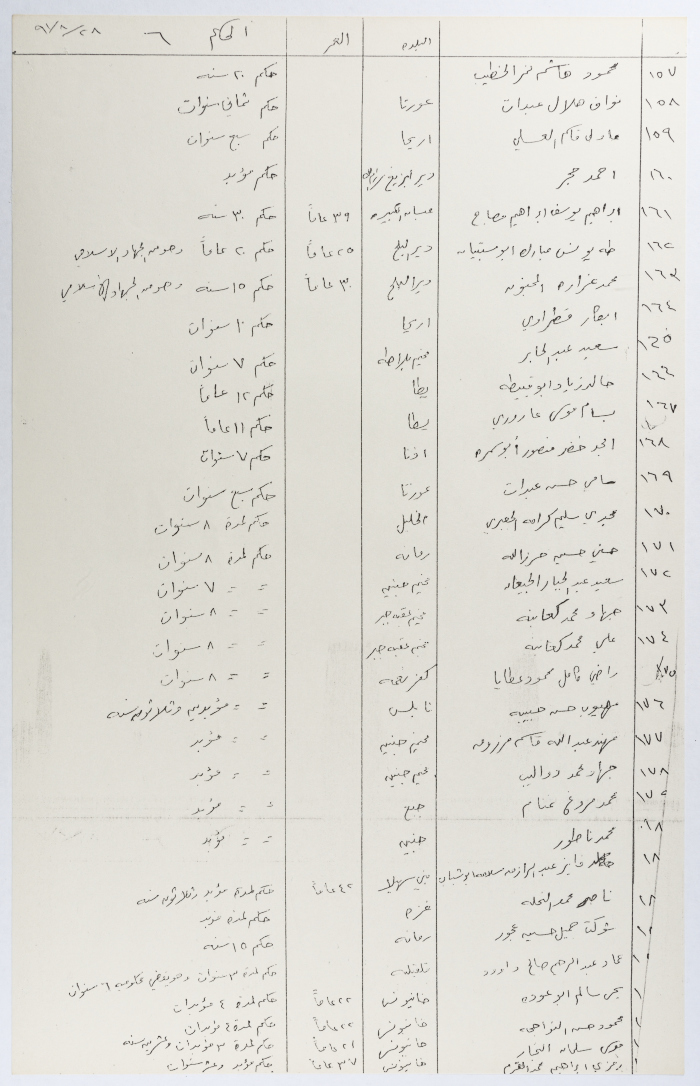 البلده العمر الحكم ٦ ٩١/٨/٢٨
١٥٧ محمود هاشم نمر الخطيب حكم ٢٠ سنه
١٥٨ نواف هلال عبدات عورتا حكم ثماني سنوات
١٥٩ قاسم اريحا حكم سبع سنوات
١٦٠ احمد حجر دير ابزيغ حكم مؤبد
١٦١ ابراهيم يوسف ابراهيم مصباح عبسان الكبيره ٣٩ عاماً حكم ٣٠ سنه
١٦٢ طه يونس مبارك ابو ستيتان دير البلح ٢٥ عاماً حكم ٢٠ عاماً وهو من الجهاد الاسلامي
١٦٣ محمد دير البلح ٣٠ عاماً حكم ١٥ سنه وهو من الجهاد الاسلامي
١٦٤ قطراوي اريحا حكم ١٠ سنوات
١٦٥ سعيد عبد الجابر مخيم بلاطه حكم ٧ سنوات
١٦٦ خالد زياد ابو قبيطه يطا حكم ١٢ عاماً
١٦٧ بسام موسى عاروري يطا حكم ١١ عاماً
١٦٨ امجد خضر منصور أبو سمره اذنا حكم ٧ سنوات
١٦٩ سامي حسن عبدات عورتا حكم سبع سنوات
١٧٠ مجدي سليم كرامه الجعبري الخليل حكم لمدة ٨ سنوات
١٧١ حسني حسين حرزالله رمانه حكم لمدة ٨ سنوات
١٧٢ سعيد عبد الجبار مخيم جنين = = ٧ سنوات
١٧٣ جهاد محمد كعابنه مخيم عقبه جبر = = ٨ سنوات
١٧٤ علي محمد كعابنه مخيم عقبه جبر = = ٨ سنوات
١٧٥ راضي كامل محمود عطايا كفر نعمه = = ٨ سنوات
١٧٦ حسن حبيبه نابلس = = مؤبدين وثلاثون سنه
١٧٧ مهند عبدالله قاسم مخيم جنين = = مؤبد
١٧٨ جهاد محمد دواليب مخيم جنين = = مؤبد
محمد مروح غنام جبع = = مؤبد
محمد ناطور جنين = = مؤبد
١٨ خالد فايز عبد الرازق بني سهيلا ٤٢ عاماً حكم لمدة مؤبد وثلاثون سنه
ناصر محمد النخله غزه حكم لمدة مؤبد
شوكت جميل حسين عجور رمانه حكم ١٥ سنه
عماد عبد الرحيم صالح داوود قلقيليه حكم لمدة ٣ سنوات ٦ سنوات
يحي سالم خانيونس ٢٢ عاماً حكم لمدة ٤ مؤبدات
محمود حسن خانيونس ٢٢ عاماً حكم لمدة ٤ مؤبدات
موسى سلمان النجار خانيونس ٢١ عاماً حكم لمدة ٣ مؤبدات وعشرين سنه
رمزي ابراهيم محمد خانيونس ٣٧ عاماً حكم مؤبد وعشر سنوات